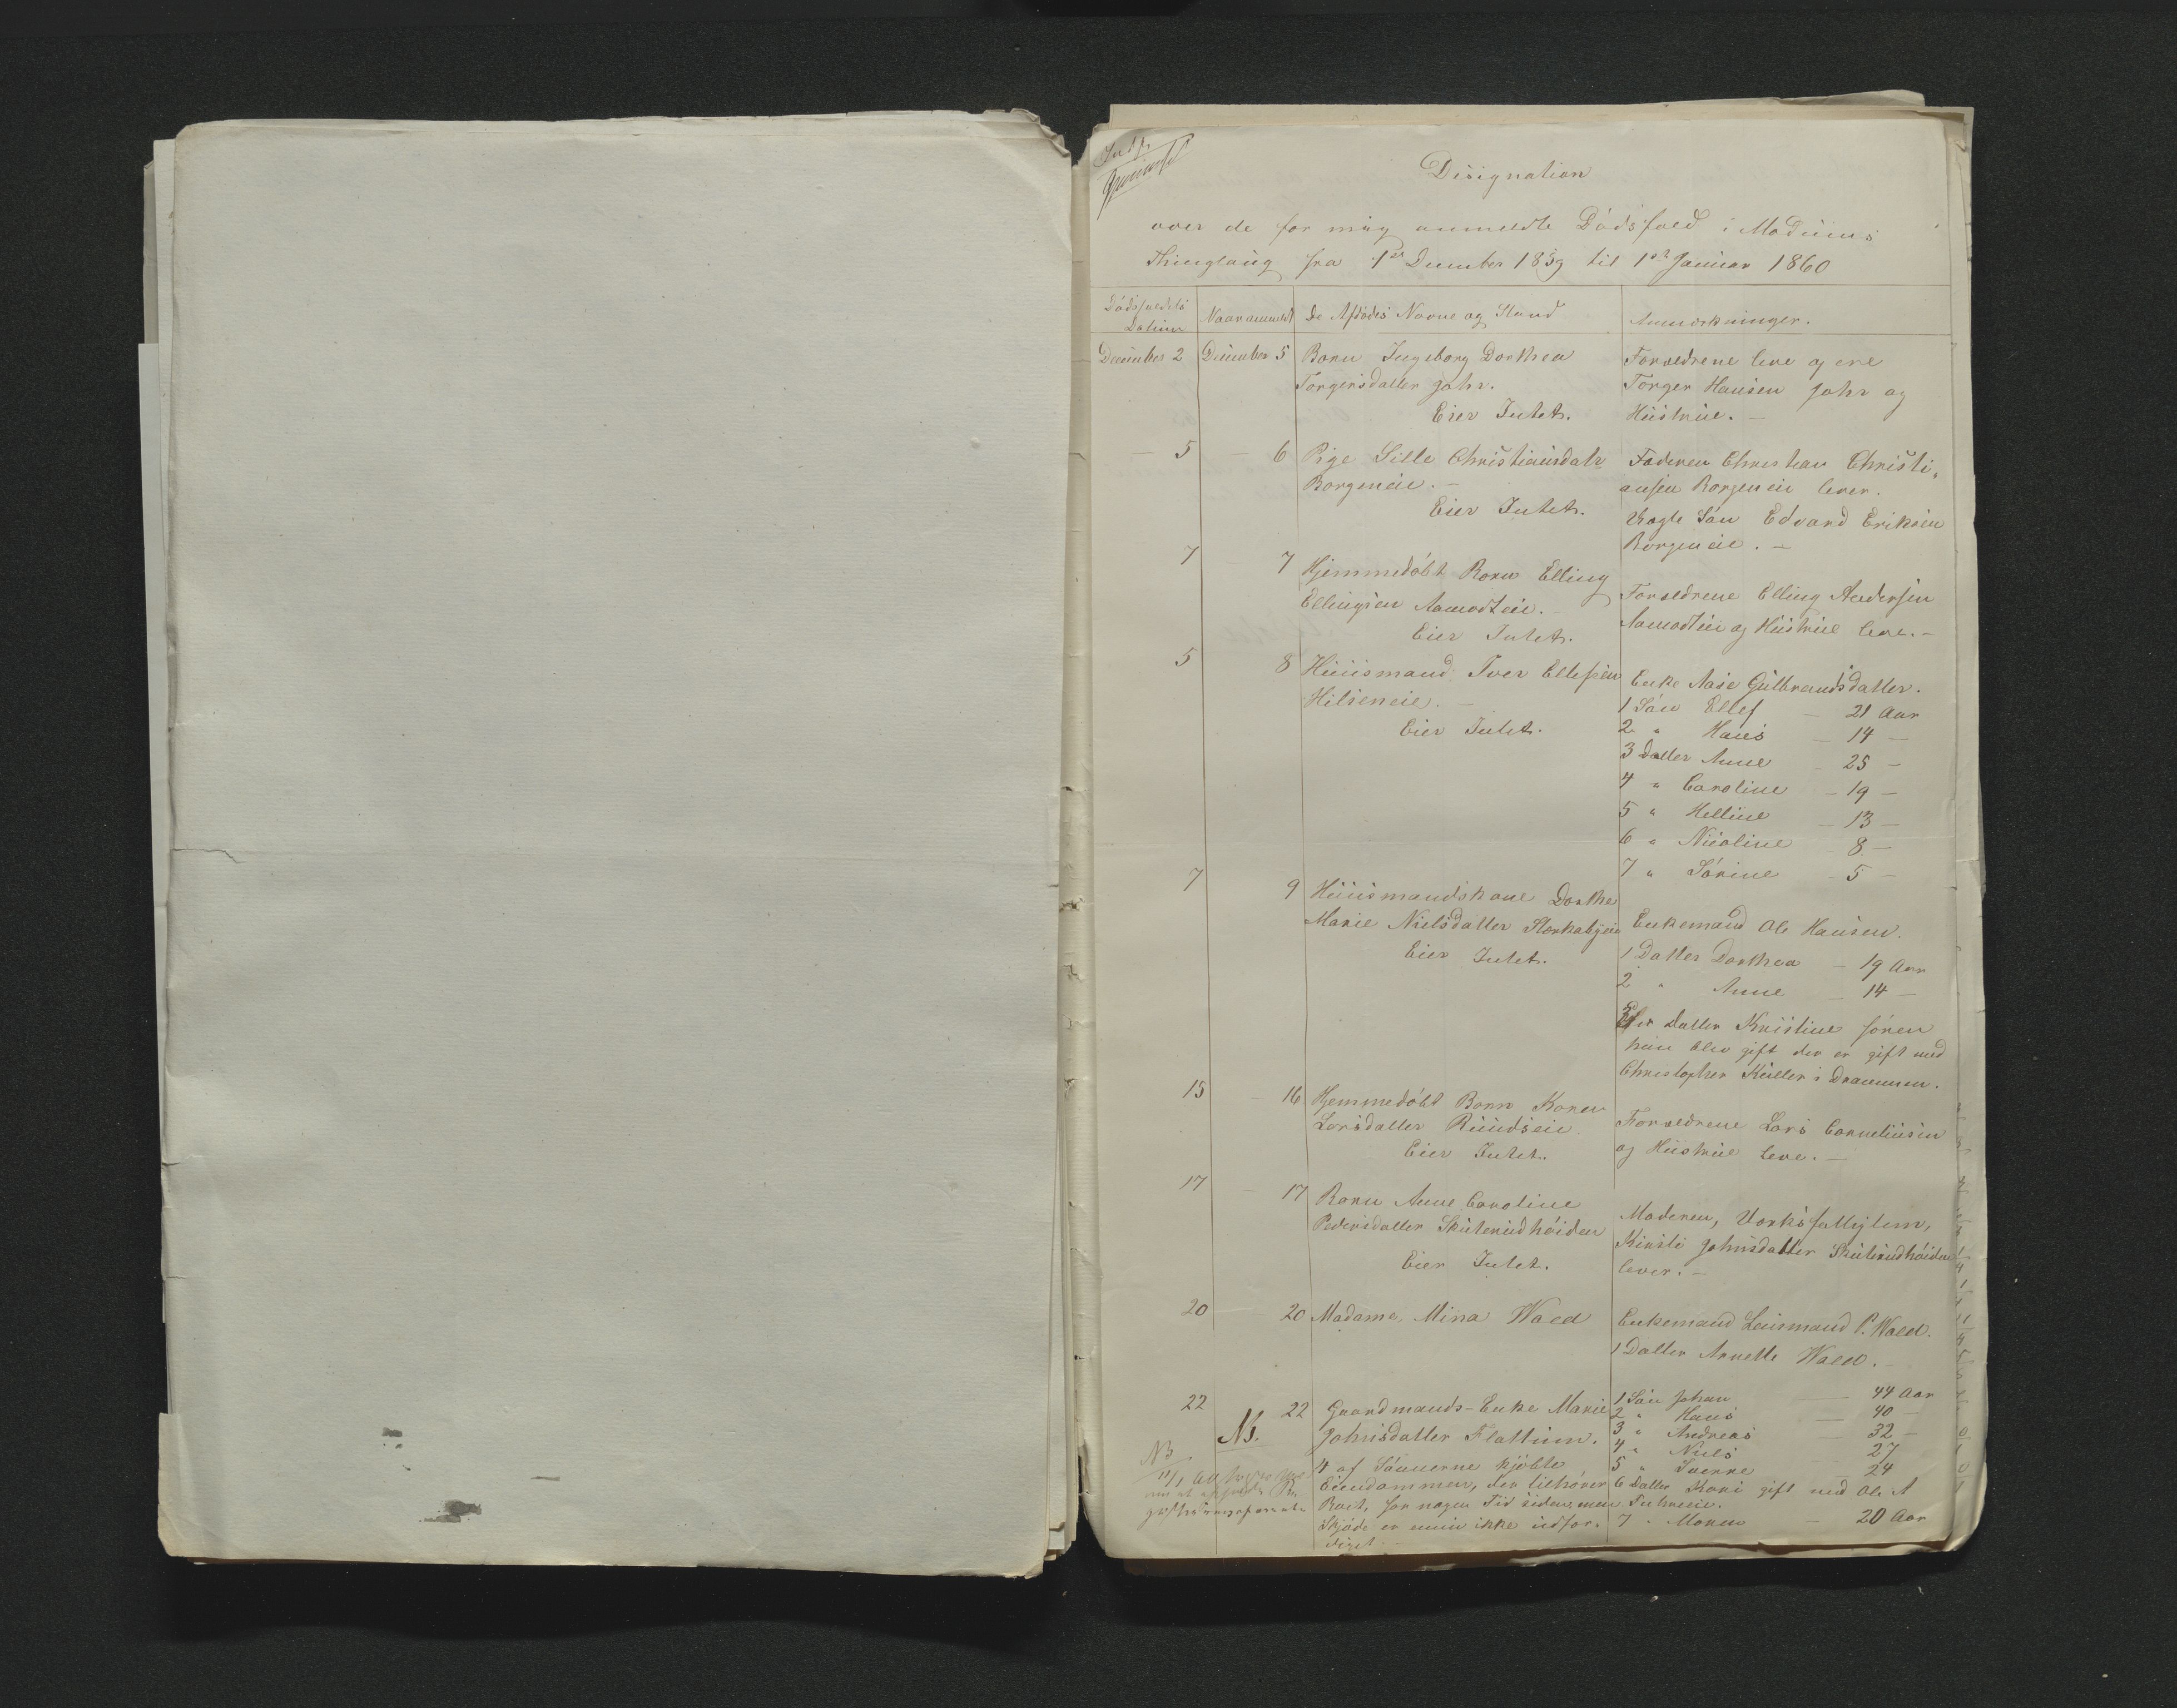 Designation
over de for mig anmeldte Dödsfald i Modums
Thinglaug fra 1ste December 1859 til 1ste Januar 1860
Dödsfaldets Datum
Naar anmeldt
De Afdödes Navne og Stand
Anmærkninger.
December 2 December 5 Barn Ingeborg Dorthea
Torgersdatter Jahr.
Eier Intet.
Forældrene leve og ere
Torger Hansen Jahr og
Hustrue. —
— 5 — 6 Pige Sille Christiansdatr
Borgeneie. —
Eier Intet.
Faderen Christian Christi-
ansen Borgeneie lever.
Uægte Sön Edvard Eriksen
Borgeneie. —
7 7 Hjemmedöbt Barn Elling
Ellingsen Aamodteie. —
Eier Intet.
Forældrene Elling Andersen
Aamodteie og Hustrue leve. —
5 8 Huusmand Iver Ellefsen
Hilseneie. —
Eier Intet.
Enke Aase Gulbrandsdatter.
1 Sön Ellef — 21 Aar
2 " Hans — 14 —
3 Datter Anne — 25 —
4 " Caroline — 19 —
5 " Helline — 13 —
6 " Nicoline — 8 —
7 " Sörine — 5 —
7 9 Huusmandskone Dorthe
Marie Nielsdatter Stærkabyeie
Eier Intet.
Enkemand Ole Hansen.
1 Datter Dorthea — 19 Aar
2 " Anne — 14 —
Datter Kristine förend
hun blev gift der er gift med
Christopher Keller i Drammen.
15 — 16 Hjemmedöbt Barn Karen
Larsdatter Ruudseie.
Eier Intet.
Forældrene Lars Corneliusen
og Hustrue leve. —
17 — 17 Barn Anne Caroline
Pedersdatter Skuterudhöiden
Eier Intet.
Moderen,
Kirsti Johnsdatter Skuterudhöiden
lever. —
20 — 20 Madame Mina Wæld
Enkemand Lensmand P. Wæld.
1 Datter Annette Wæld. —
22 22 Gaardmands-Enke Marie
NB. Johnsdatter Flattum.
4 af Sönnerne kjöbte
Eiendommen, der tilhörer
Boet, for nogen Tid siden, men
Skjöde er ennu ikke udfær-
diget. —
1 Sön Johan — 44 Aar
2 " Hans — 40 —
3 " Andreas — 32 —
4 " Niels 27
5 " 24
6 Datter Kari gift med Ole A
7 " Maren — 20 Aar
NB
11/1 60